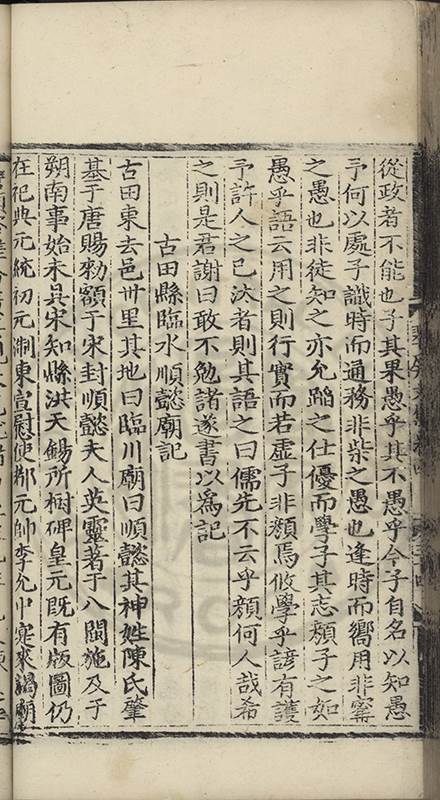 從政者不能也子其果愚乎其不愚乎今子自名以知愚
予何以處子識時而通務非柴之愚也逢時而嚮用非甯
之愚也非徒知之亦允蹈之仕優而學子其志顏子之如
愚乎語云用之則行實而若虛子非顏焉攸學乎諺有護
予許人之已汰者則其語之曰儒先不云乎顏何人哉希
之則是君謝曰敢不勉諸遂書以爲記
古田縣臨水順懿廟記
古田東去邑卅里其地曰臨川廟曰順懿其神姓陳氏肇
基于唐賜勑額于宋封順懿夫人英靈著于八閩施及于
朔南事始末具宋知縣洪天錫所樹碑皇元既有版圖仍
在祀典元統初元淛東宣慰使都元帥李允中寔來謁廟